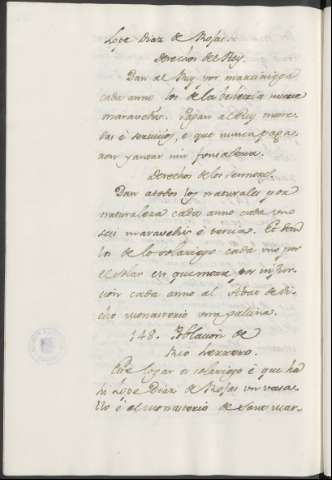 Lope Diaz de Rojas.
Derechos del Rey.
Dan al Rey por martiniega
cada anno los de la behetria nueve
maravedis. Pagan al Rey mone-
das é servicios, é que nunca paga-
ron yantar nin fonsadera.
Derechos de los sennores.
Dan a todos los naturales por
naturaleza cada anno cada uno
seis maravedis é tercia. Et dan
los de lo solariego cada uno por
el solar en que mora por infur-
cion cada anno al Abat de di-
cho monasterio una gallina.
148. Poblacion de
Rio herrero.
Este logar es solariego é que ha
hi Lope Diaz de Rojas un vasa-
llo é al monasterio de Sant Mar-